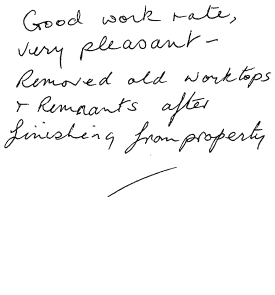 Good work rate,
very pleasant -
Removed old worktops
+ Remnants after
finishing from property